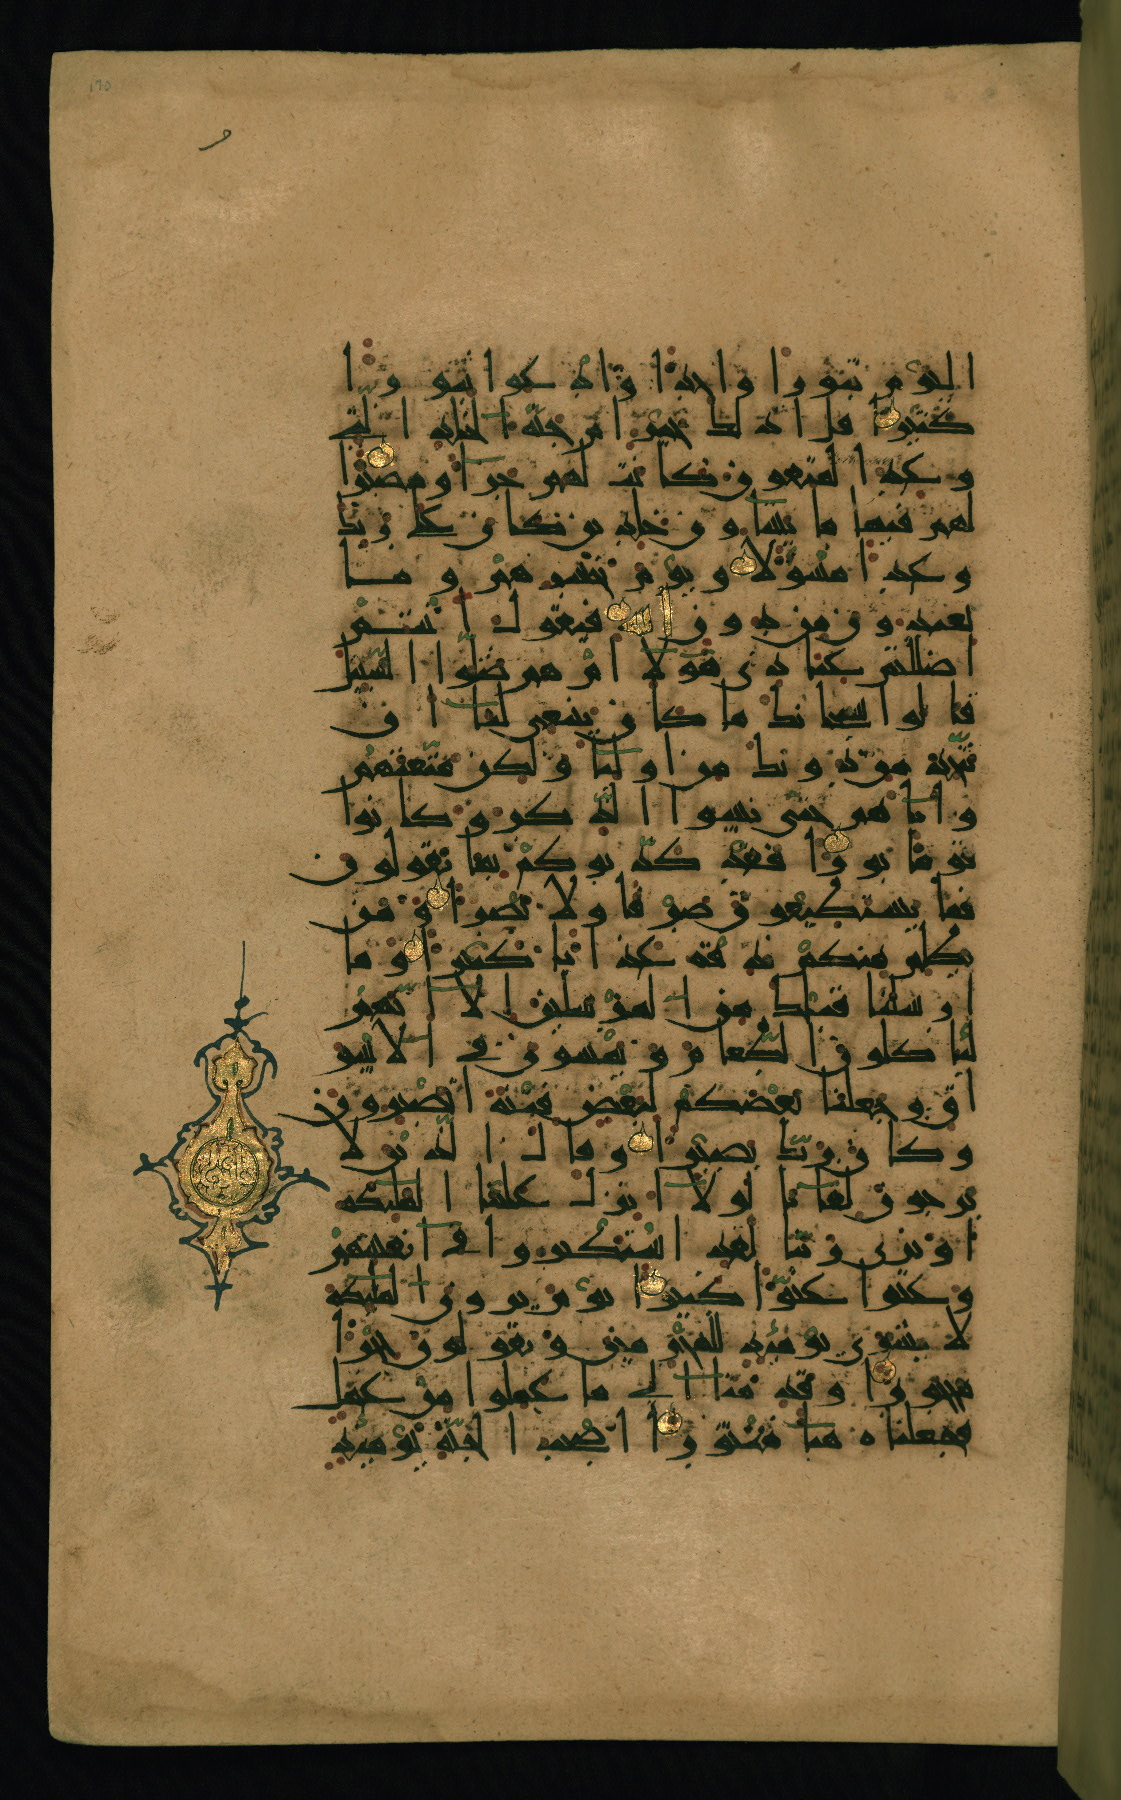 ١٦٥
اليوم ثبورا واحدا وادعوا ثبورا
كثيرا قل اذلك خير ام جنة الخلد التي
وعد المتقون كانت لهم جزاء ومصيرا
لهم فيها ما يشاؤن خلدين كان على ربك
وعدا مسؤلا ويوم نحشرهم وما
يعبدون من دون الله فيقول ءانتم
اضللتم عبادي هؤلاء ام هم ضلوا السبيل
قالوا سبحانك ما كان ينبغي لنا ان
نتخذ من دونك من اولياء ولكن متعتهم
واباءهم حتى نسوا الذكر وكانوا
قوما بورا فقد كذبوكم بما تقولون
فما يستطيعون صرفا ولا نصرا ومن
يظلم منكم نذقه عذابا كبيرا وما
ارسلنا قبلك من المرسلين الا انهم
ليأكلون الطعام ويمشون في الاسو
اق وجعلنا بعضكم لبعض فتنة اتصبرون
وكان ربك بصيرا وقال الذين لا
يرجون لقاءنا لولا انزل علينا الملئكة
او نرى ربنا لقد استكبروا في انفسهم
وعتوا عتوا كبيرا يوم يرون الملئكة
لا بشرى يومئذ للمجرمين ويقولون حجرا
محجورا وقدمنا الى ما عملوا من عمل
فجعلناه هباء منثورا اصحب الجنة يومئذ